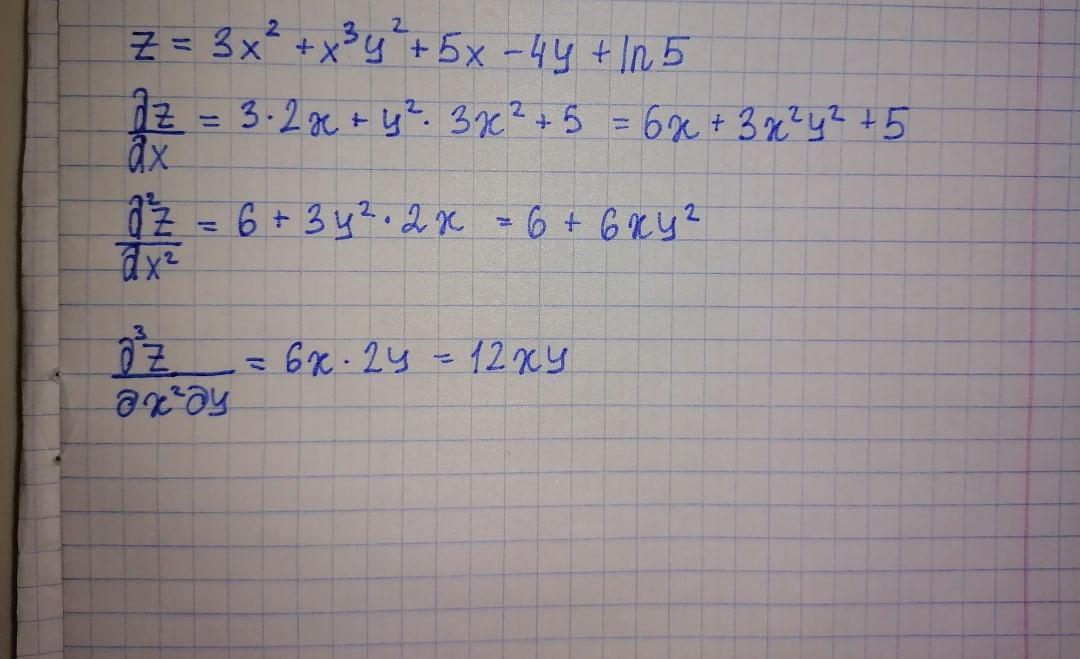 z = 3x² + x³y² + 5x - 4y + ln 5
∂z/∂x = 3·2x + y²· 3x² + 5 = 6x + 3x²y² + 5
∂²z/∂x² = 6 + 3y²·2x = 6 + 6xy²
∂³z/∂x²∂y = 6x·2y = 12xy